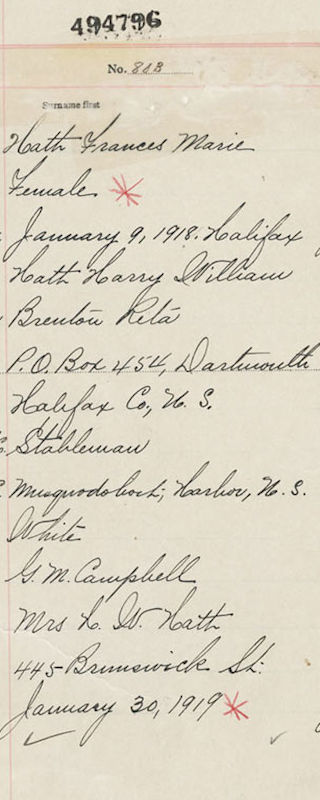 494796
No.
Surname first
Hath Frances Marie
Female
January 9, 1918. Halifax
Hath Harry William
Brenton Reta
P.O. Box 454, Dartmouth
Halifax Co., N. S.
Stableman
Musquodoboit, Harbor, N. S.
White
G. M. Campbell
Mrs H. W. Hath
445 Brunswick St.
January 30, 1919